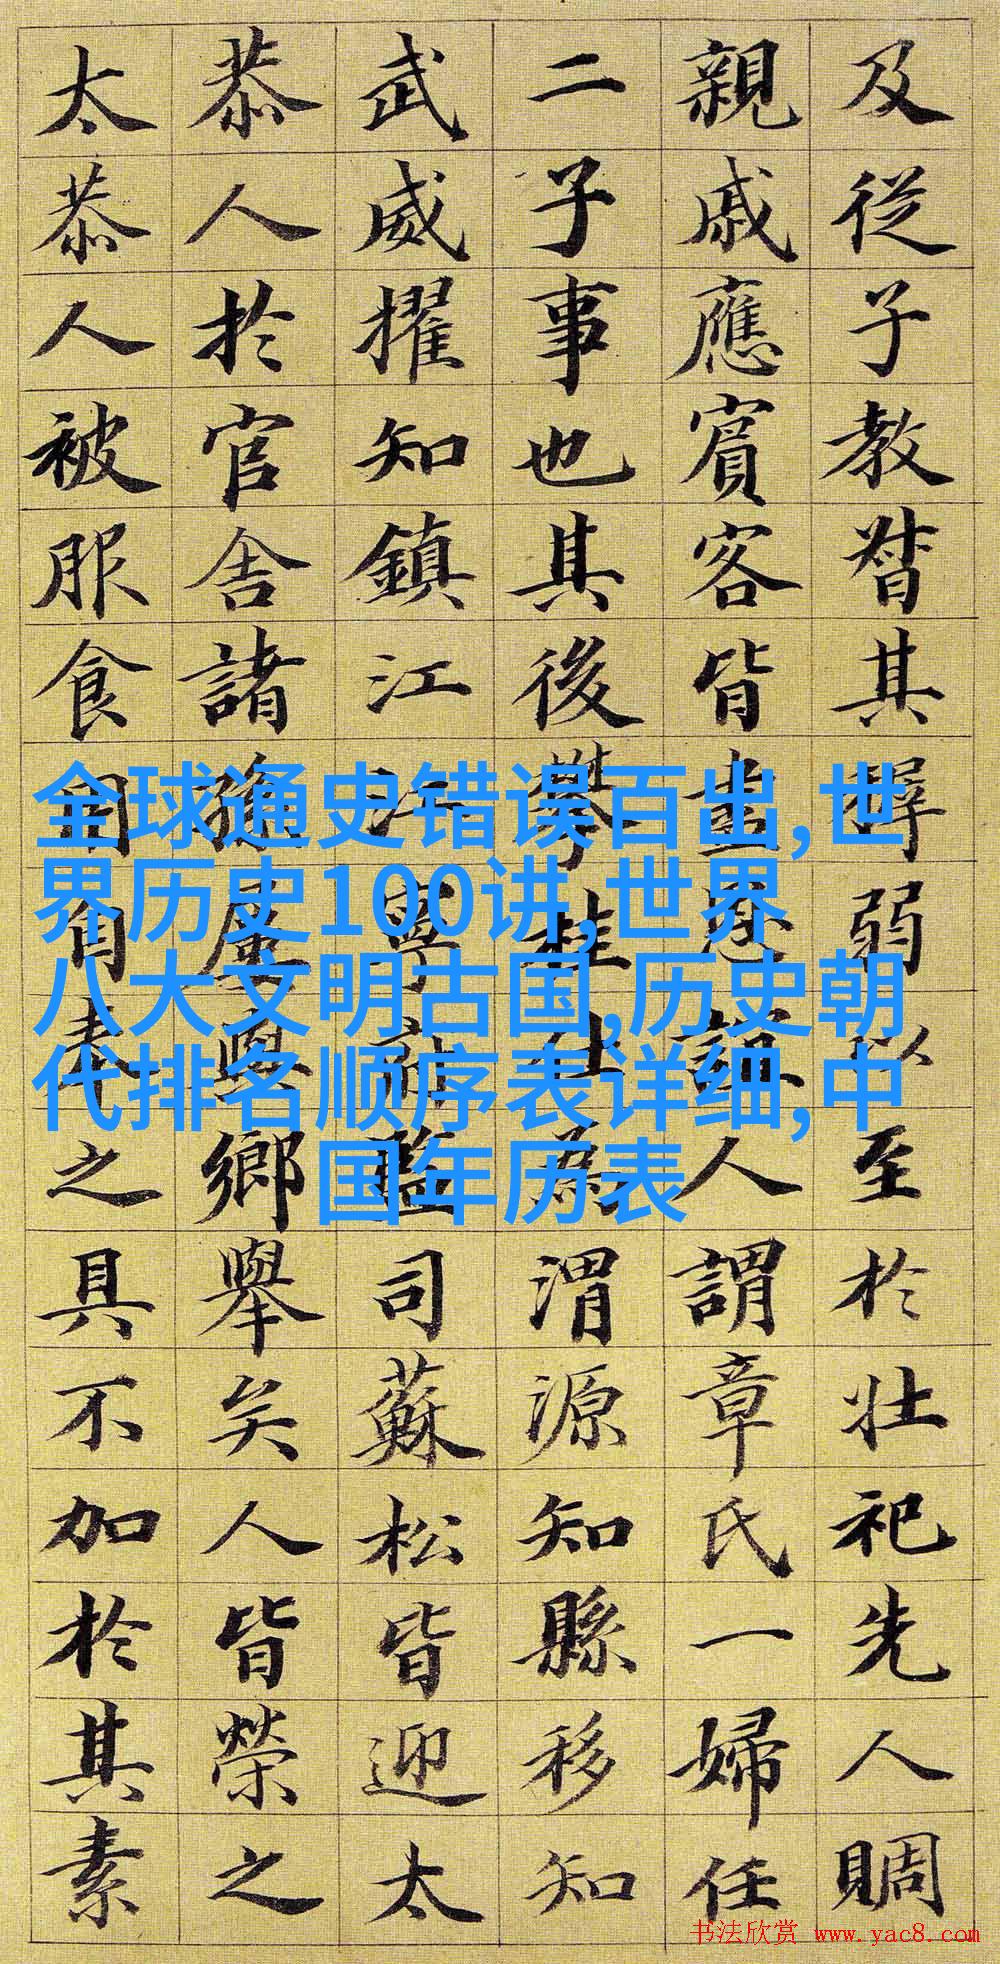 及從子教督其穉弱以至於壯祀先人賙
親戚應賓客皆人謂章氏一婦任
二子事也其後攀桂仕為渭源知縣移知
武威擢知鎮江江寧監司蘇松皆迎太
恭人於官舍諸孫與鄉舉矣人皆榮之
太恭人被服食用自奉之具不加於其素
全球通史错误百出,世
界历史100讲,世界
八大文明古国,历史朝
代排名顺序表详细,中
国年历表
书法欣赏 www.yac8.com